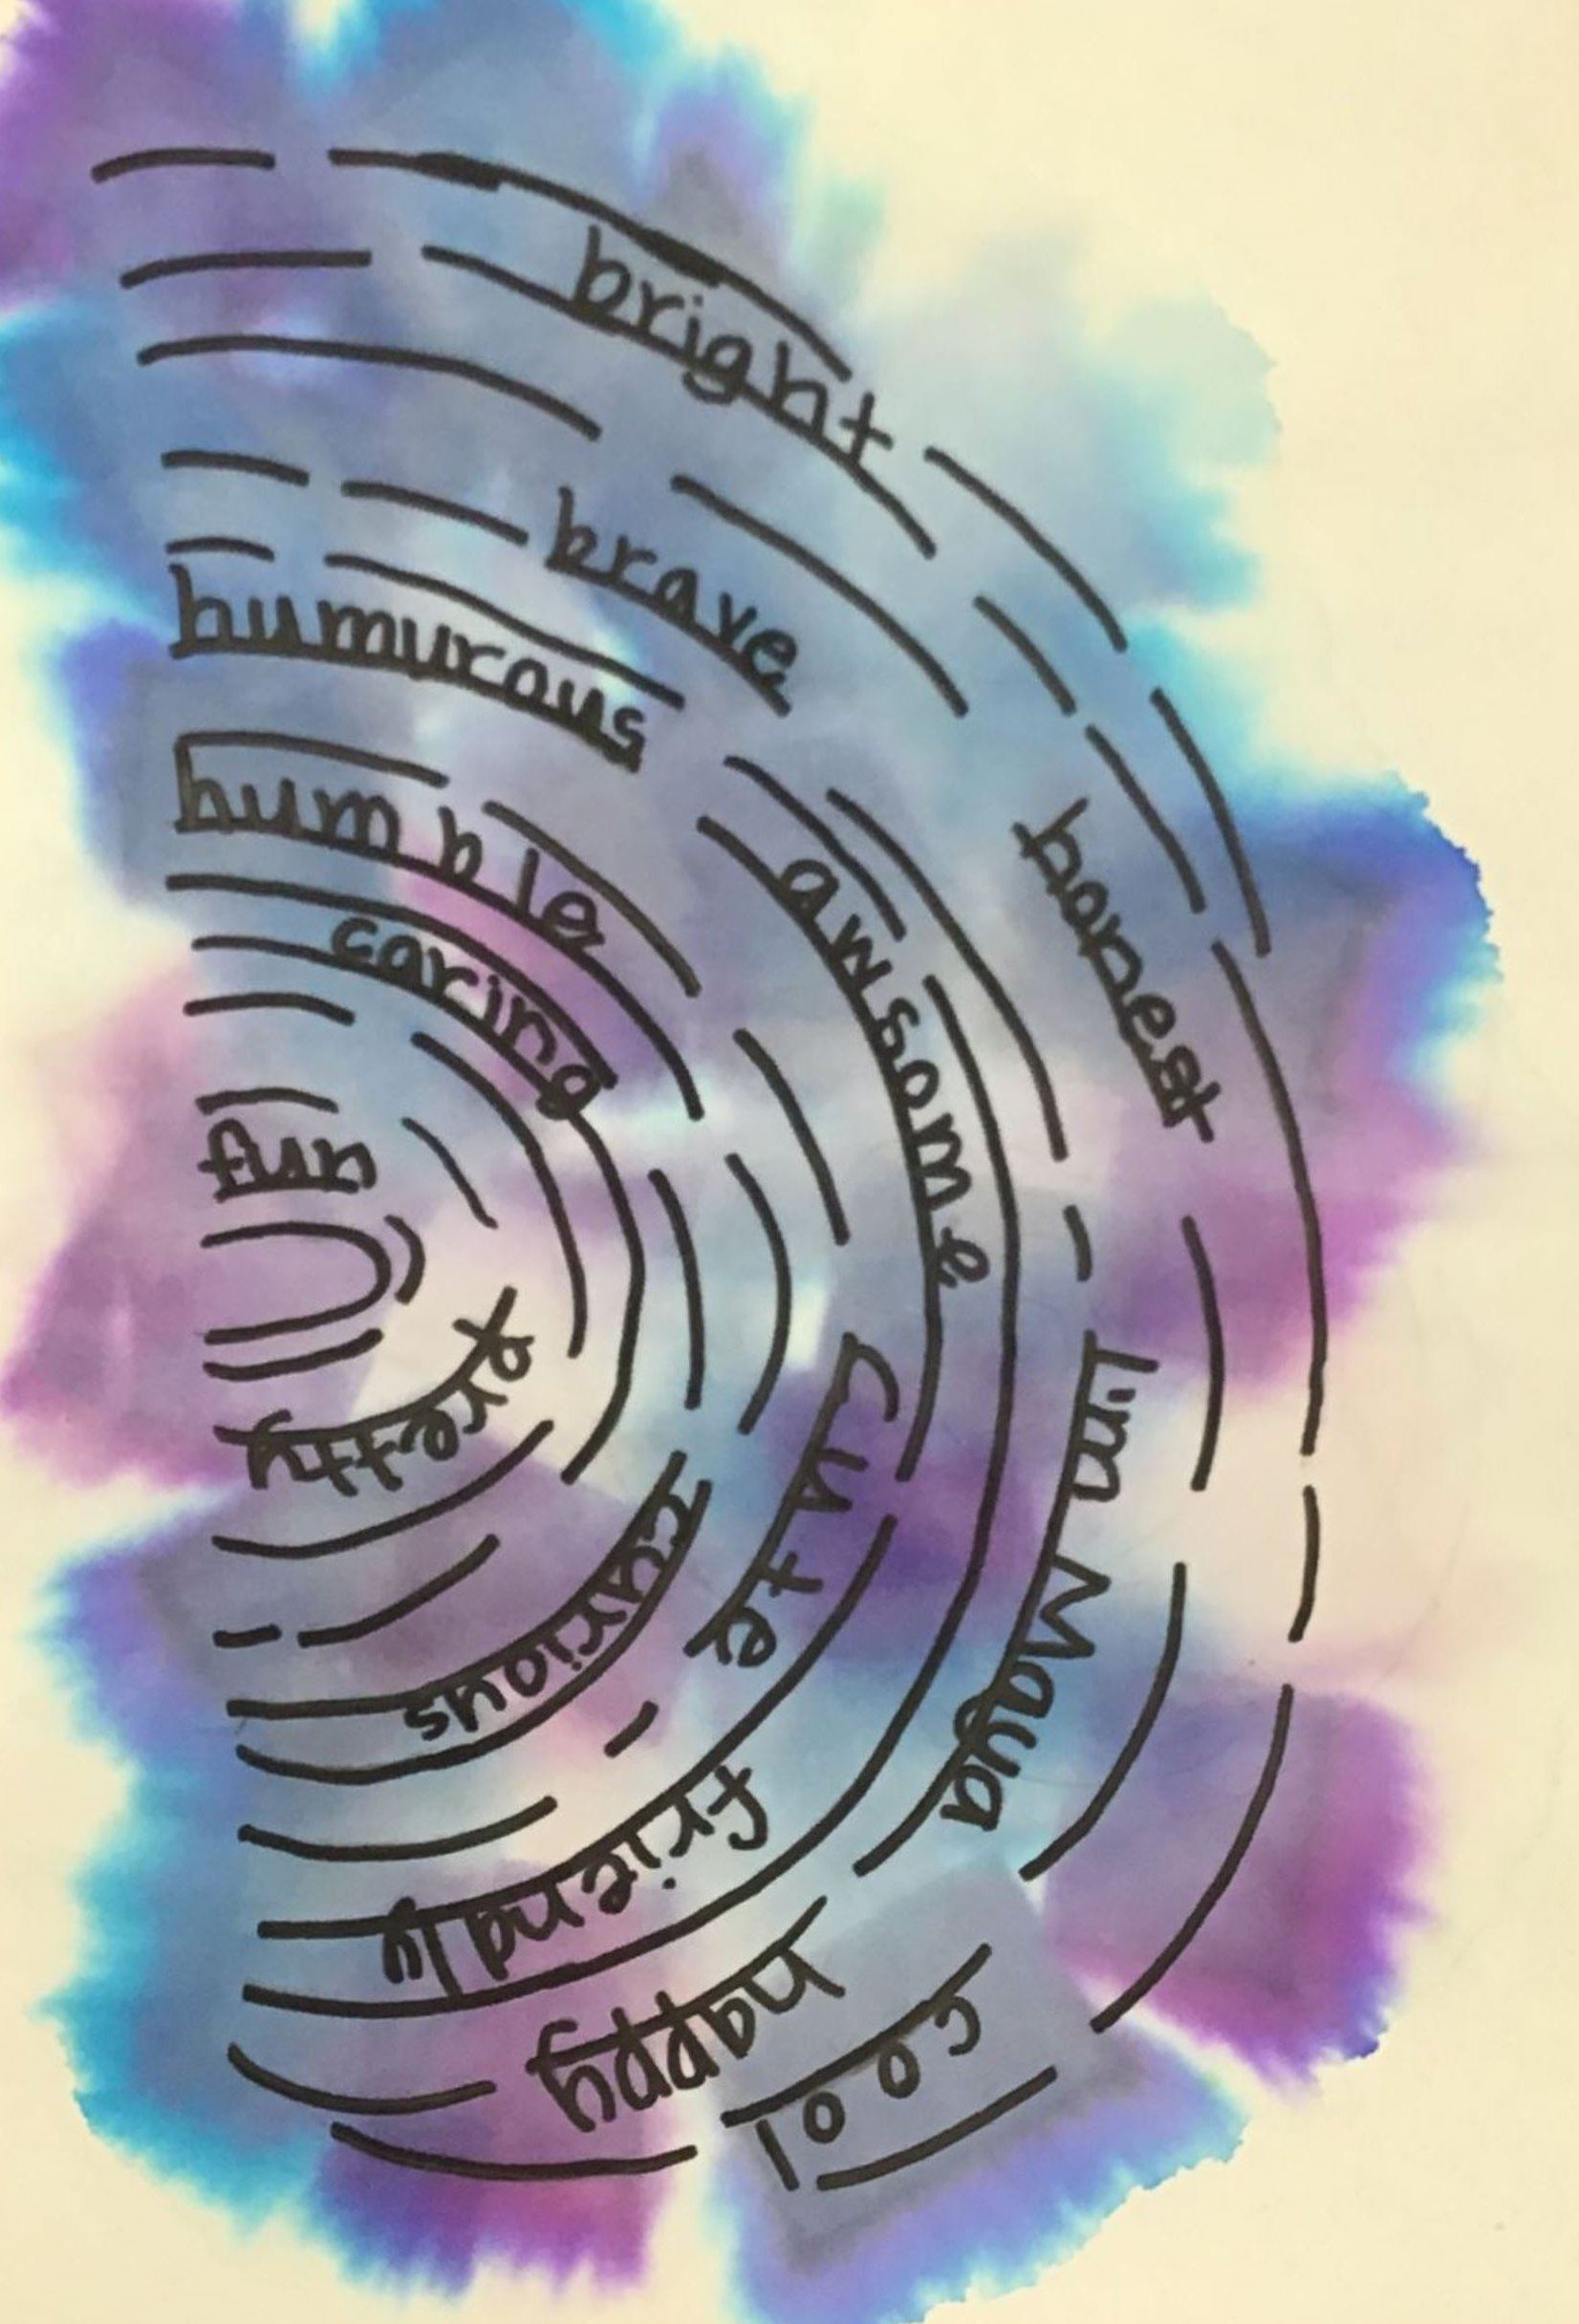 bright
honest
I'm Maya
cool
happy
brave
awsome
cute
friendly
humurous
humble
caring
curious
fun
pretty